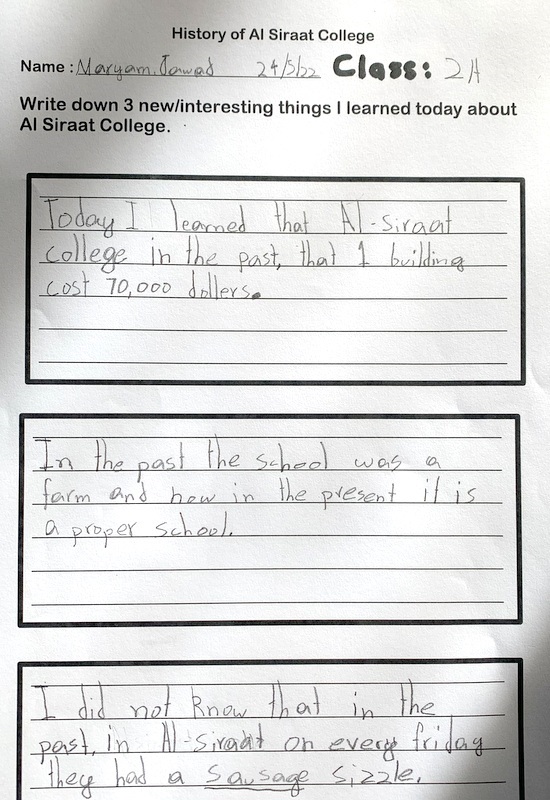 History of Al Siraat College
Name : Maryam.Jawad 24/5/22 Class: 2A
Write down 3 new/interesting things I learned today about
Al Siraat College.
Today I learned that Al-siraat
college in the past, that 1 building
cost 70,000 dollers.
In the past the school was a
farm and now in the present it is
a proper school.
I did not know that in the
past, in Al-siraat on every friday
they had a sausage sizzle.